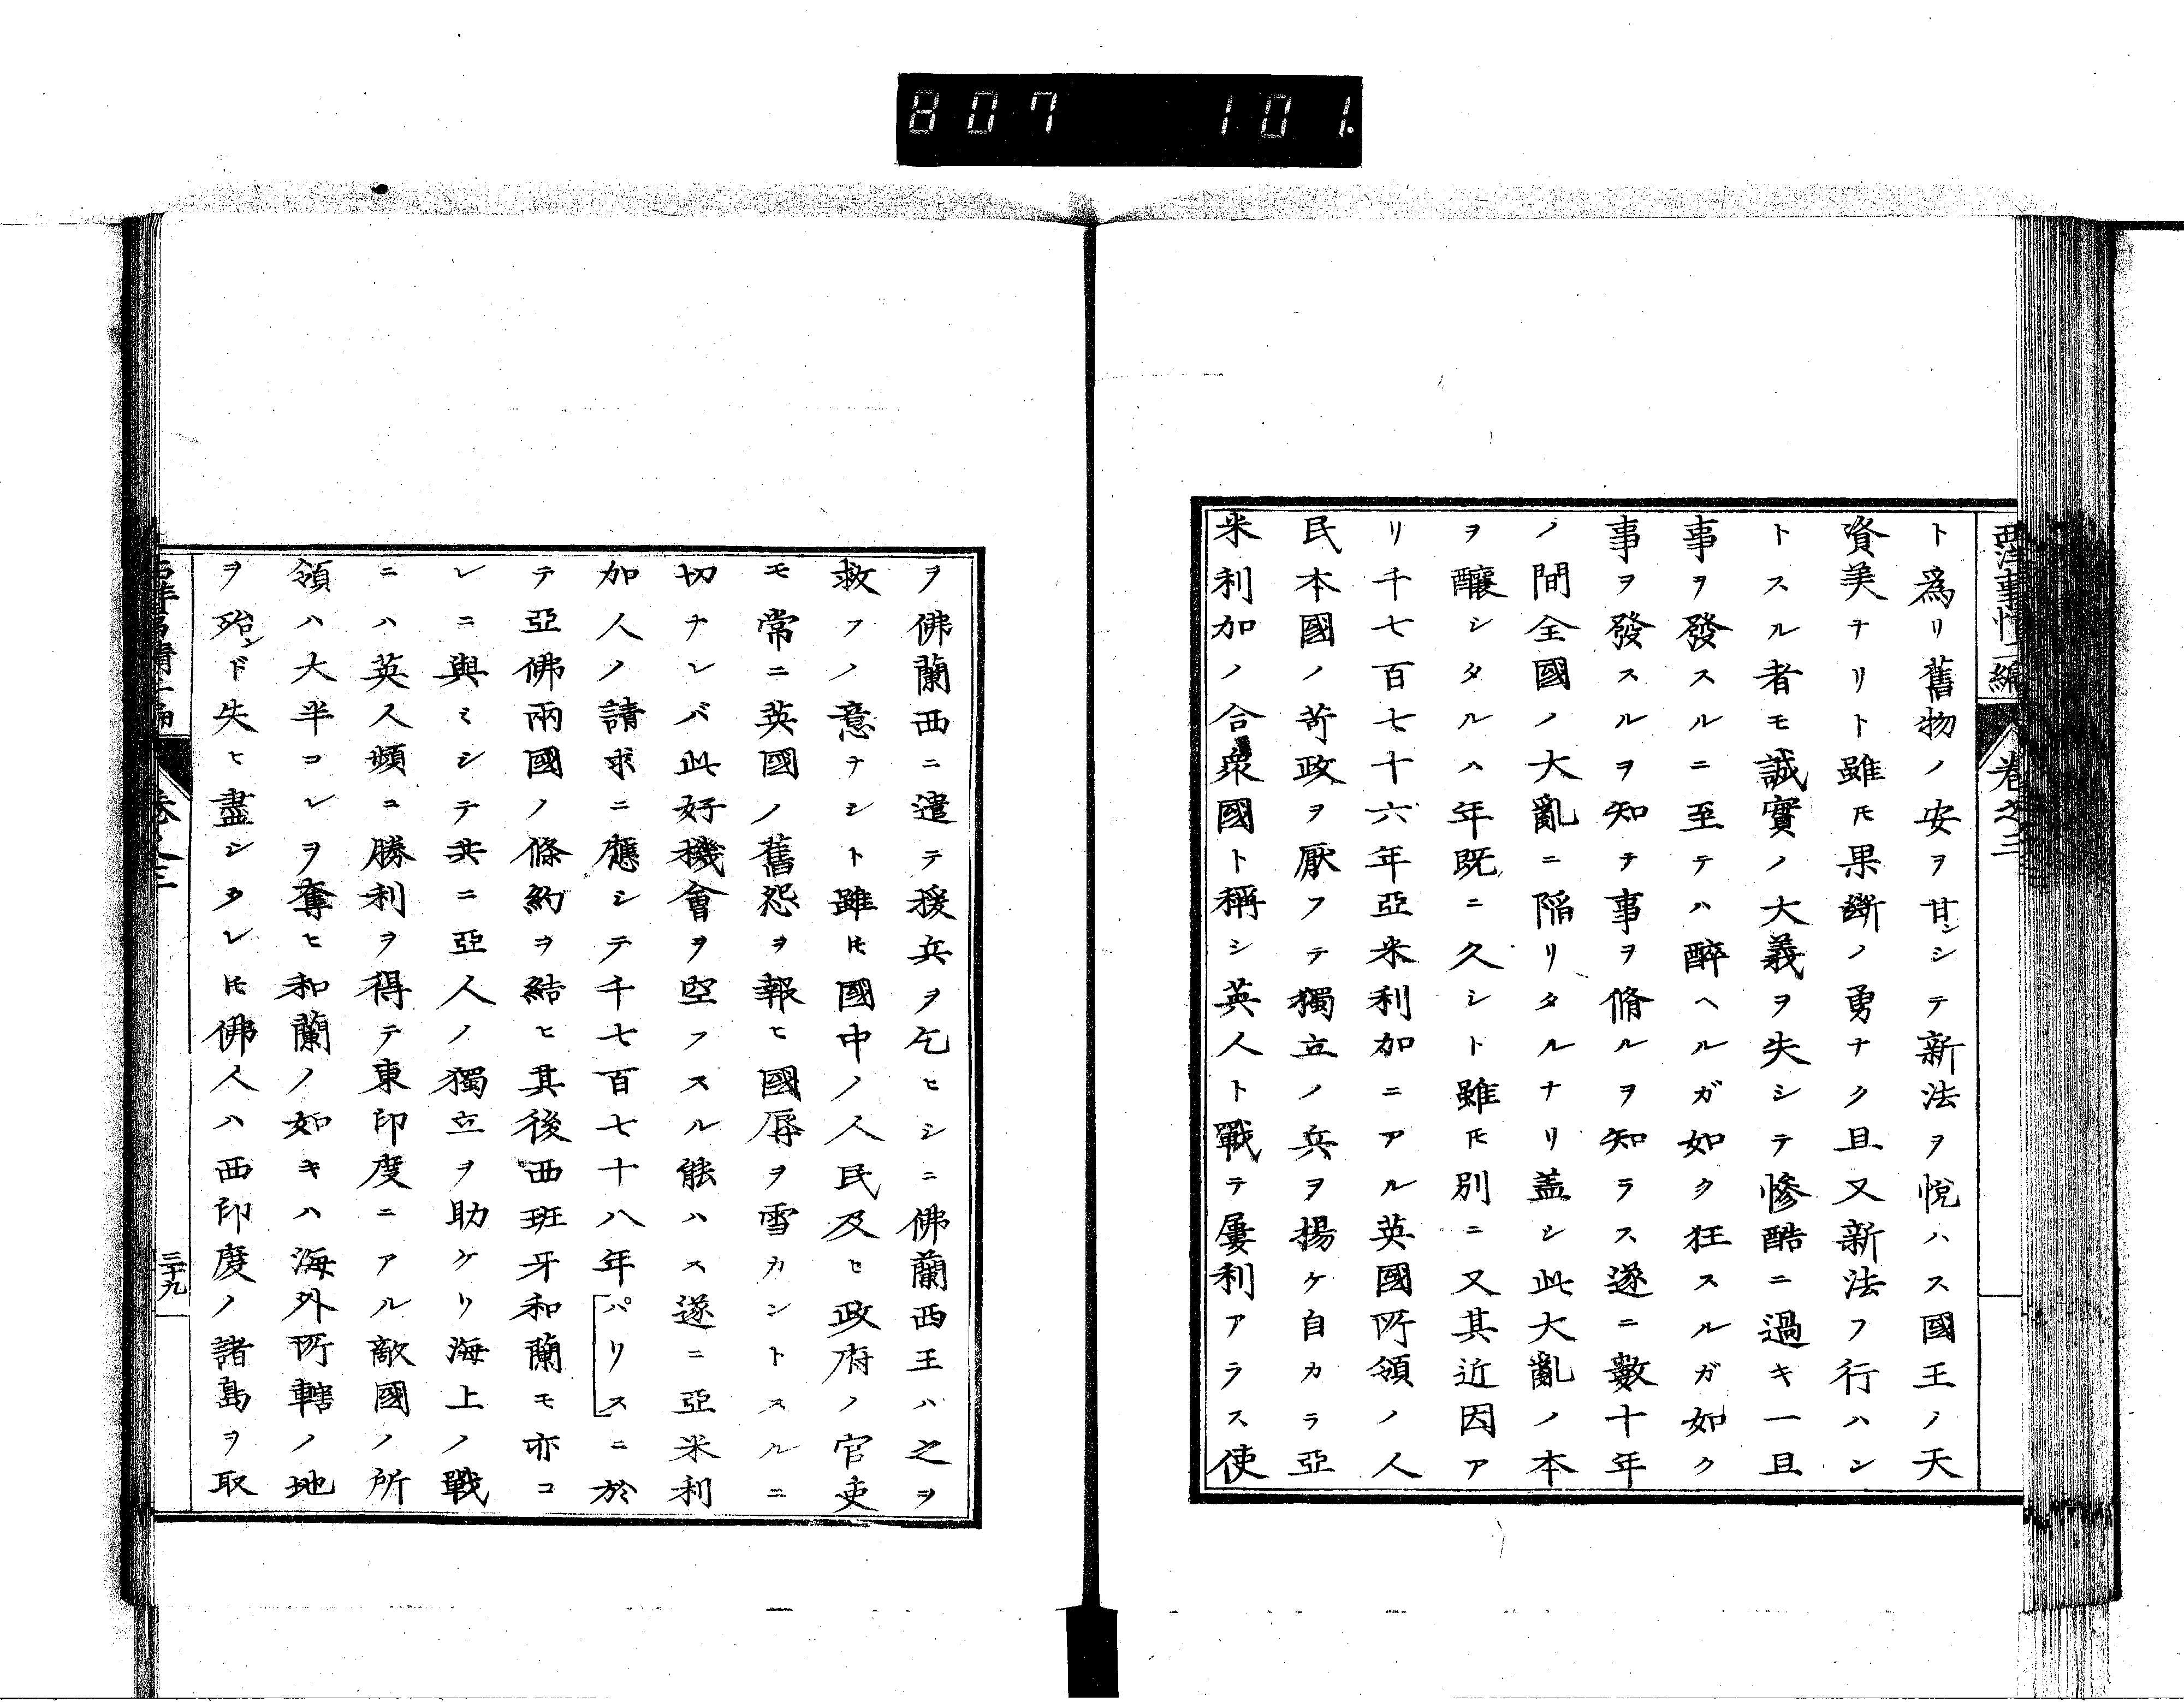 807 101.
西洋事情二編 卷之三
ト爲リ舊物ノ安ヲ甘ンシテ新法ヲ悅ハス國王ノ天
資美ナリト雖𪜈果斷ノ勇ナク且又新法フ行ハン
トスル者モ誠實ノ大義ヲ失シテ慘酷ニ過キ一旦
事ヲ發スルニ至テハ醉ヘルガ如ク狂スルガ如ク
事ヲ發スルヲ知テ事ヲ脩ルヲ知ラス遂ニ數十年
ノ間全國ノ大亂ニ陷リタルナリ盖シ此大亂ノ本
ヲ釀シタルハ年既ニ久シト雖𪜈別ニ又其近因ア
リ千七百七十六年亞米利加ニアル英國所領ノ人
民本國ノ苛政ヲ厭フテ獨立ノ兵ヲ揚ケ自カラ亞
米利加ノ合衆國ト稱シ英人ト戰テ屢利アラス使
ヲ佛蘭西ニ遣テ援兵ヲ乞ヒシニ佛蘭西王ハ之ヲ
救フノ意ナシト雖𪜈國中ノ人民及ヒ政府ノ官吏
モ常ニ英國ノ舊怨ヲ報ヒ國辱ヲ雪カントスルニ
切ナレバ此好機會ヲ空フスル能ハス遂ニ亞米利
加人ノ請求ニ應シテ千七百七十八年パリスニ於
テ亞佛兩國ノ條約ヲ結ヒ其後西班牙和蘭モ亦コ
レニ與ミシテ共ニ亞人ノ獨立ヲ助ケリ海上ノ戰
ニハ英人頻ニ勝利ヲ得テ東印度ニアル敵國ノ所
領ハ大半コレヲ奪ヒ和蘭ノ如キハ海外所轄ノ地
ヲ殆ンド失ヒ盡シタレ𪜈佛人ハ西印度ノ諸島ヲ取
三十九